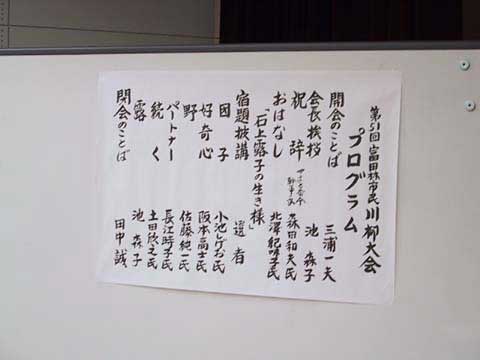 第51回富田林市民川柳大会
プログラム
開会のことば 三浦一夫
会長挨拶 池森子
祝辞 森田和夫氏
おはなし 北澤紀味子氏
「石上露子の生き様」
宿題披講 選者
団子 小池しげお氏
好奇心 阪本高士氏
野 佐藤純一氏
パートナー 長江時子氏
続く 土田欣之氏
露 池森子
閉会のことば 田中誠